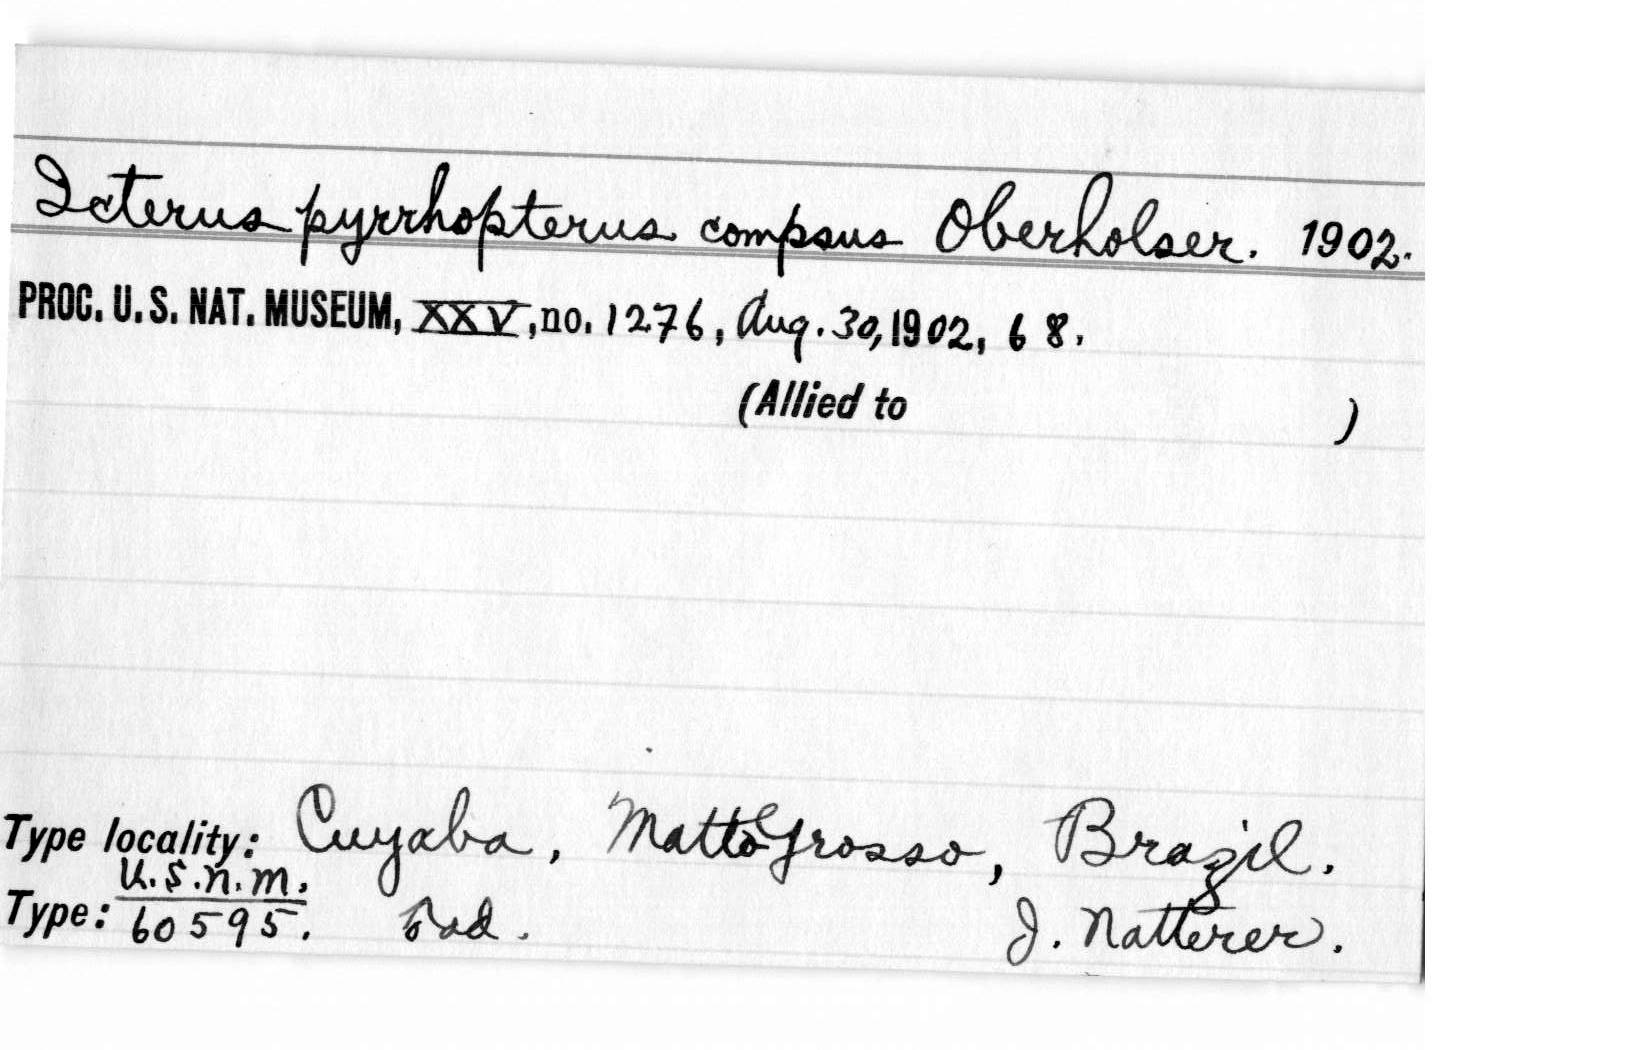 Icterus pyrrhopterus compsus Oberholser. 1902.
PROC. U. S. NAT. MUSEUM, XXV, no. 1276, Aug. 30, 1902, 68.
(Allied to )
Type locality: Cuyaba, Matto Grosso, Brazil.
Type: U.S.N.M. 60595. ad. J. Natterer.